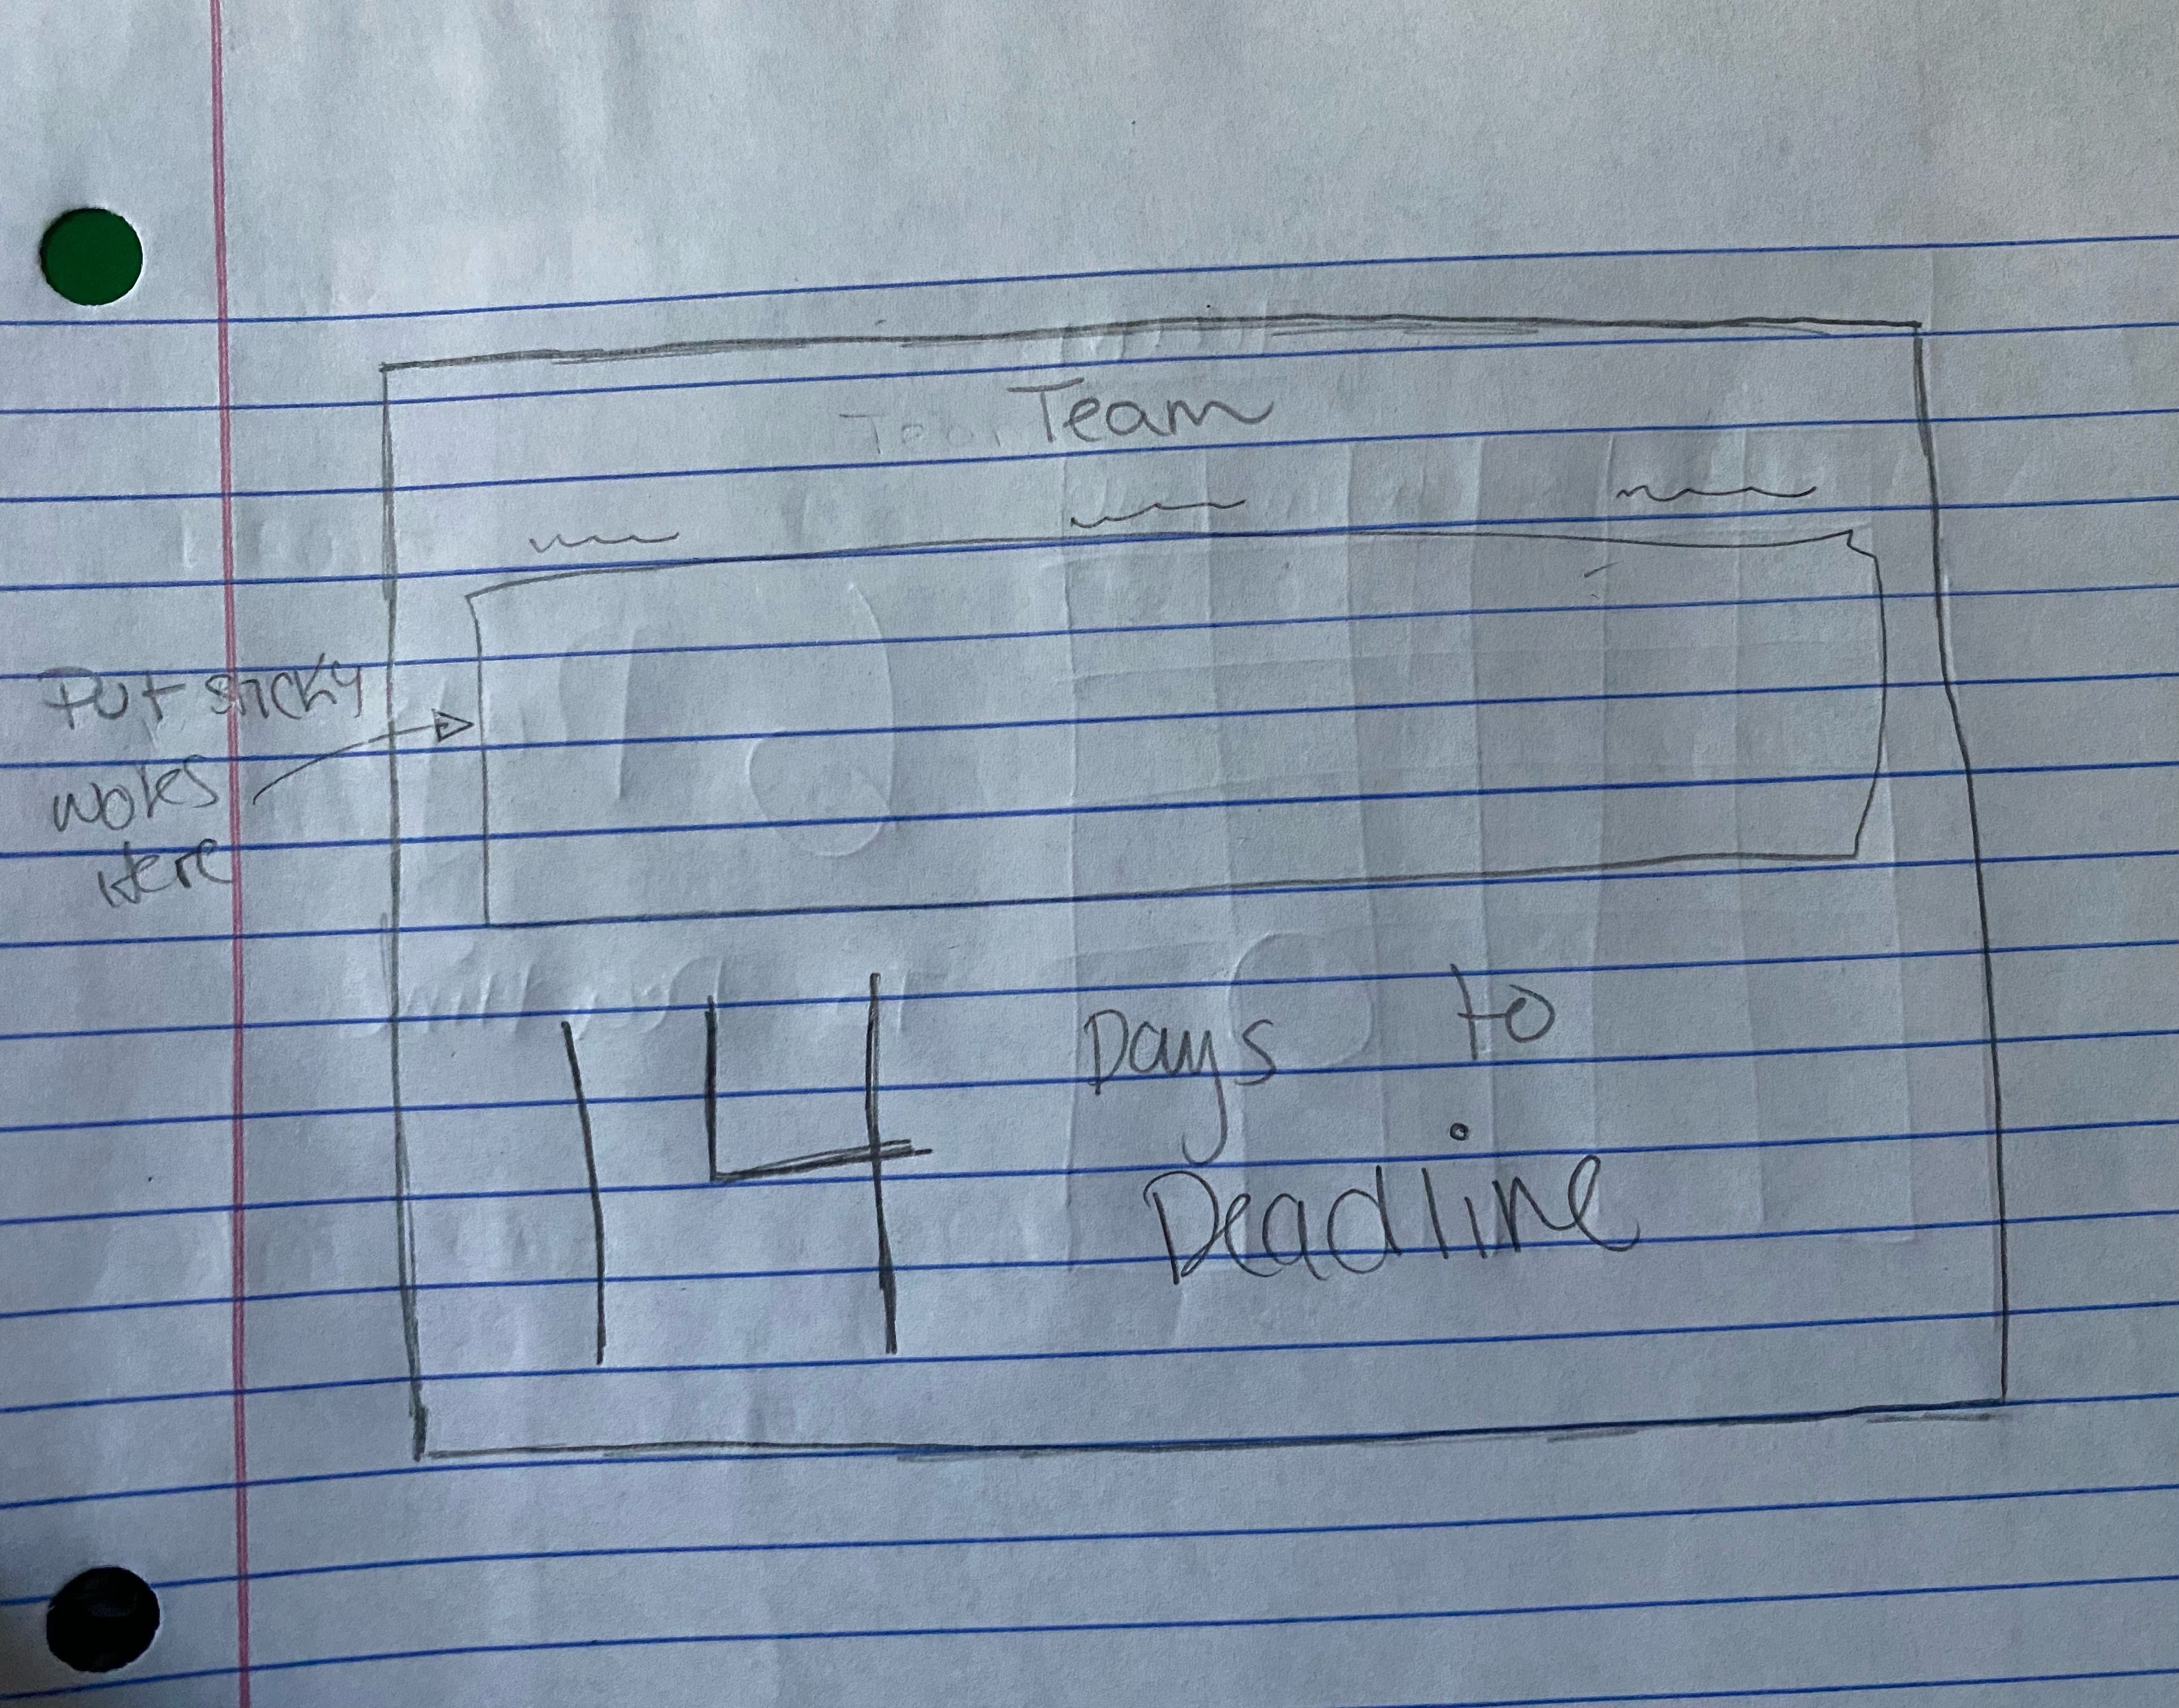 Team
Put sticky
notes
Here
14 Days to
Deadline